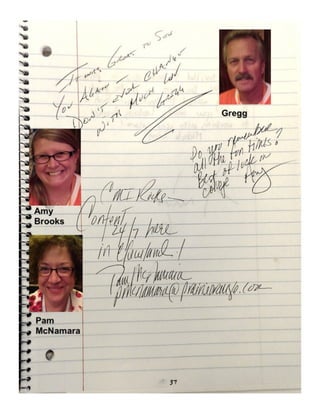 It was Great to See
You Again -
Don't Ever Change -
With Much Luv
Gregg
Gregg
Do you remember
all the fun times?
Best of luck in
college Amy
Amy
Brooks
CMI Rocks
Content
24/7 here
in Cleveland!
Pam McNamara
pmcnamara@
Pam
McNamara
37